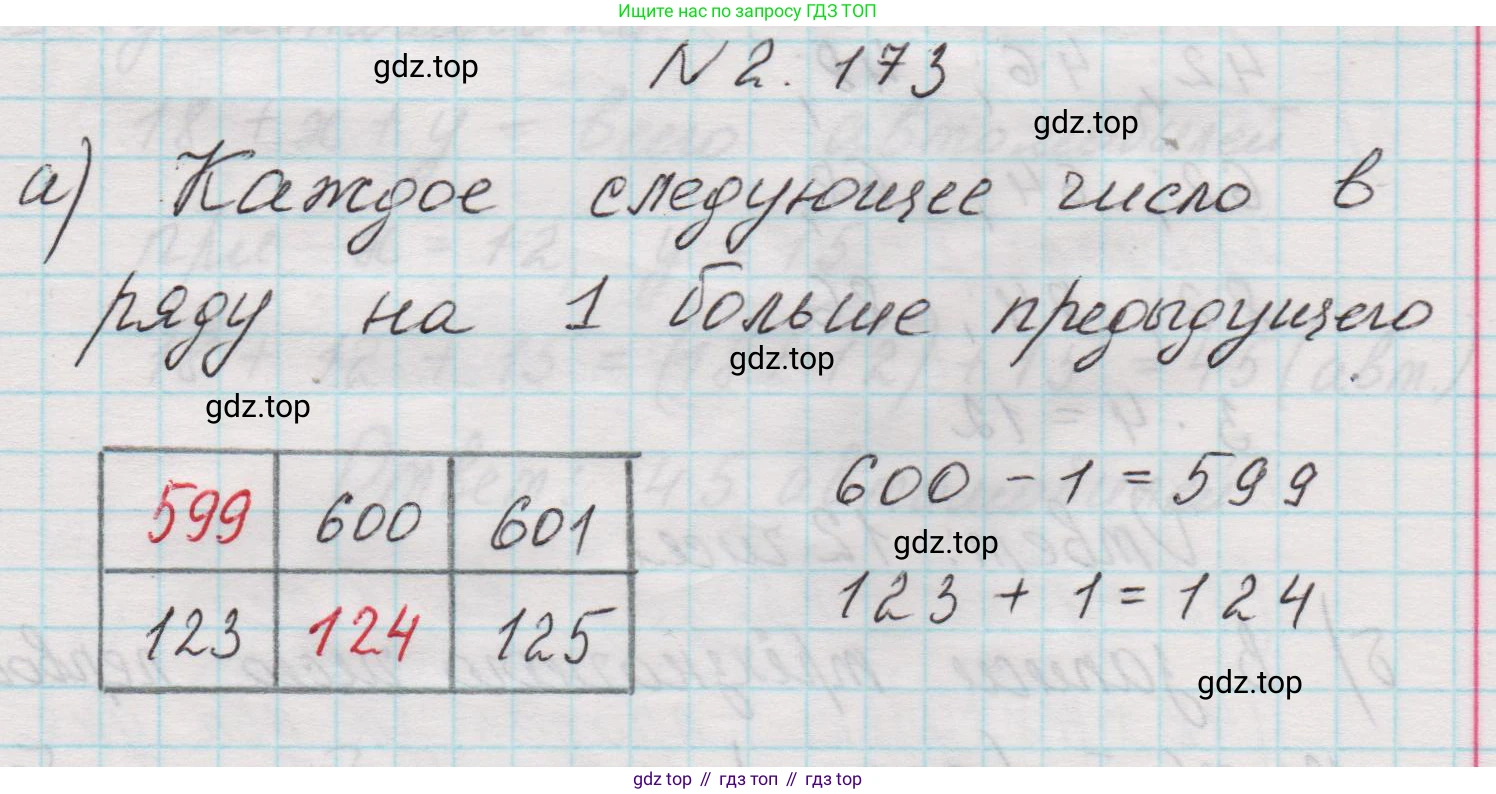 Ищите нас по запросу ГДЗ ТОП
gdz.top
N 2. 173
gdz.top
а) Каждое следующее число в
ряду на 1 больше предыдущего
gdz.top
gdz.top
599 600 601
600 - 1 = 599
gdz.top
123 124 125
123 + 1 = 124
gdz.top
gdz top // гдз топ // gdz top